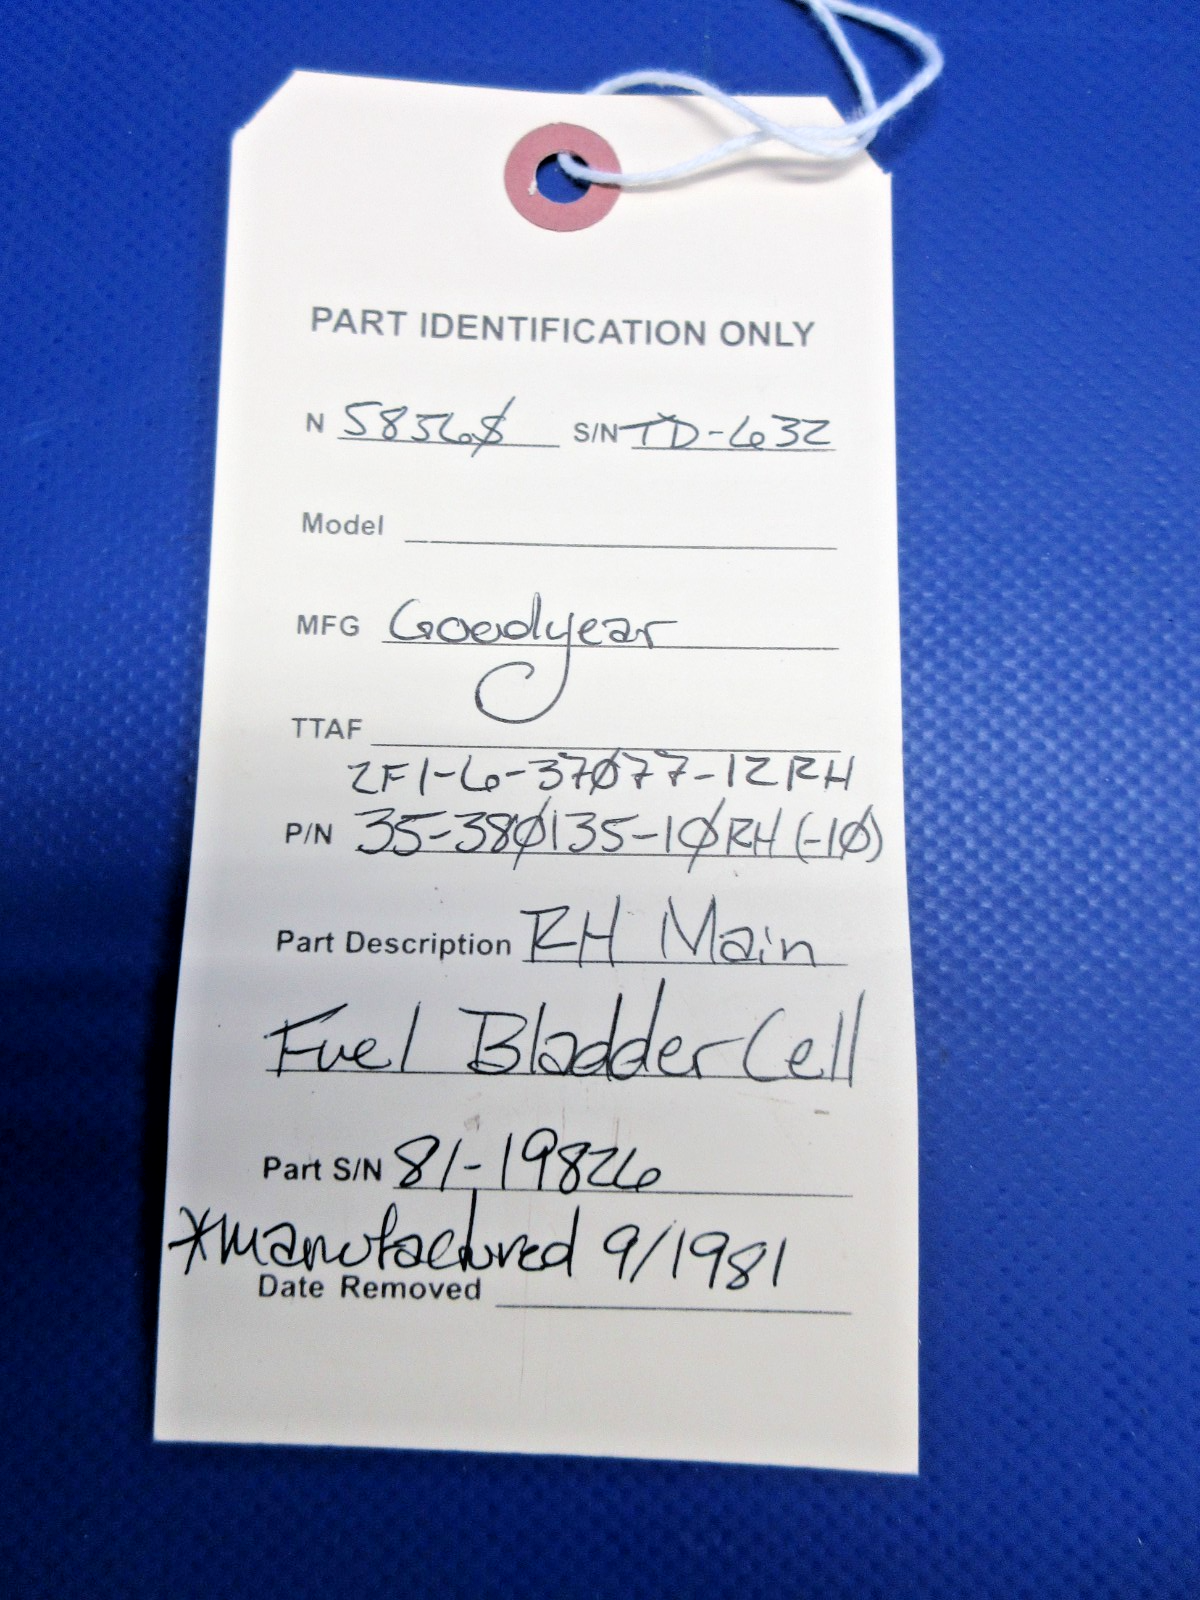 PART IDENTIFICATION ONLY
N 5856Ø S/N TD-632
Model
MFG Goodyear
TTAF
2F1-6-37Ø77-12RH
P/N 35-38Ø135-1ØRH (-1Ø)
Part Description RH Main
Fuel Bladder Cell
Part S/N 81-19826
*manufactured 9/1981
Date Removed